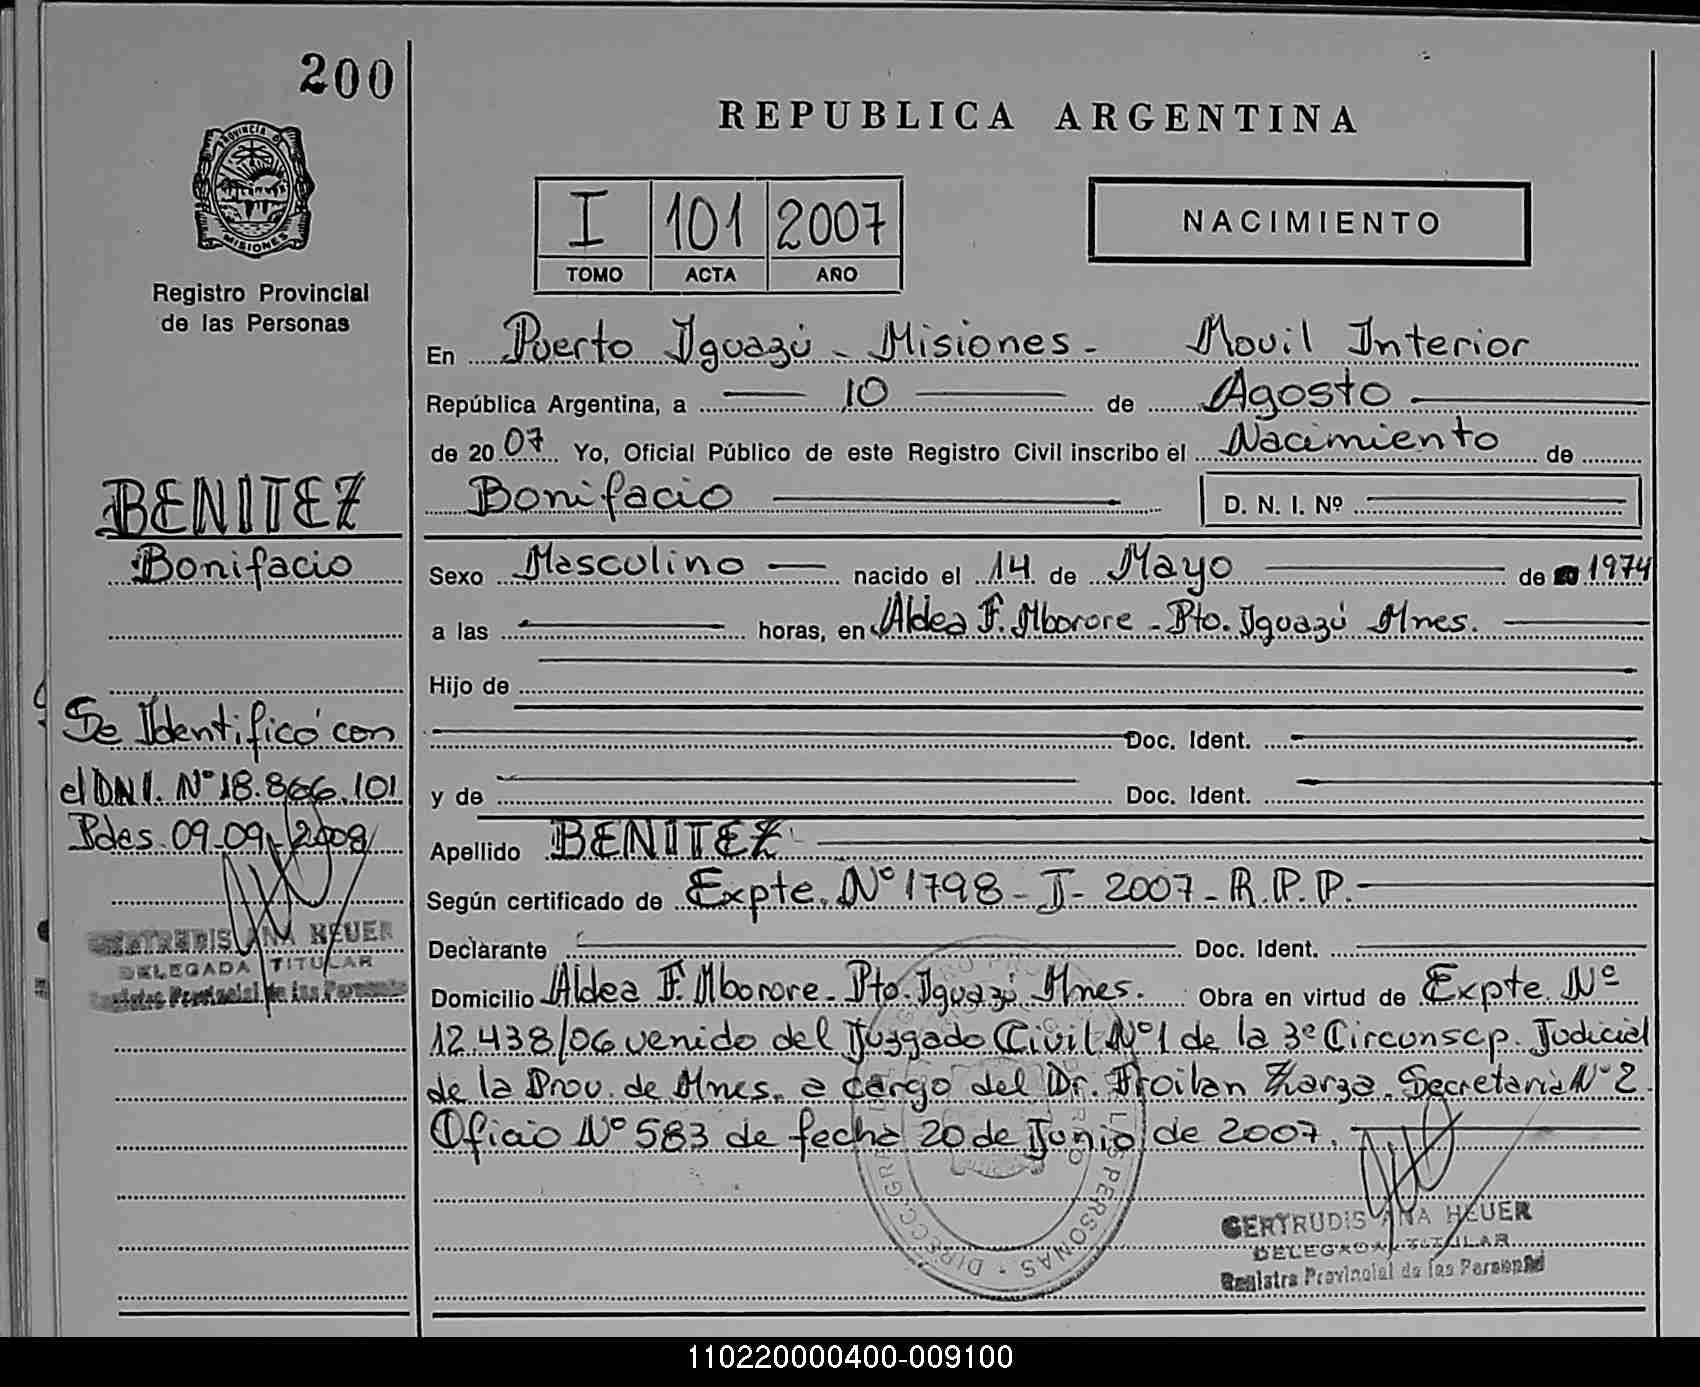 200
PROVINCIA DE
MISIONES
Registro Provincial
de las Personas
REPUBLICA ARGENTINA
I 101 2007
TOMO ACTA AÑO
NACIMIENTO
En Puerto Iguazú - Misiones - Movil Interior
República Argentina, a 10 de Agosto
de 2007 Yo, Oficial Público de este Registro Civil inscribo el Nacimiento de
Bonifacio D. N. I. Nº
Sexo Masculino nacido el 14 de Mayo de 1974
a las horas, en Aldea F. Mborore - Pto. Iguazú Mnes.
Hijo de
Doc. Ident.
y de Doc. Ident.
Apellido BENITEZ
Según certificado de Expte. Nº 1798 - J - 2007 - R.P.P.
Declarante Doc. Ident.
Domicilio Aldea F. Mborore - Pto. Iguazú Mnes. Obra en virtud de Expte. Nº
12.438/06 venido del Juzgado Civil Nº 1 de la 3º Circunscp. Judicial
de la Prov. de Mnes. a cargo del Dr. Froilan Zarza. Secretaria Nº 2
Oficio Nº 583 de fecha 20 de Junio de 2007.
GERTRUDIS ANA HEUER
DELEGADA TITULAR
Registro Provincial de las Personas
BENITEZ
Bonifacio
Se Identificó con
el DNI. Nº 18.866.101
Pdas. 09-09-2008
GERTRUDIS ANA HEUER
DELEGADA TITULAR
Registro Provincial de las Personas
110220000400-009100